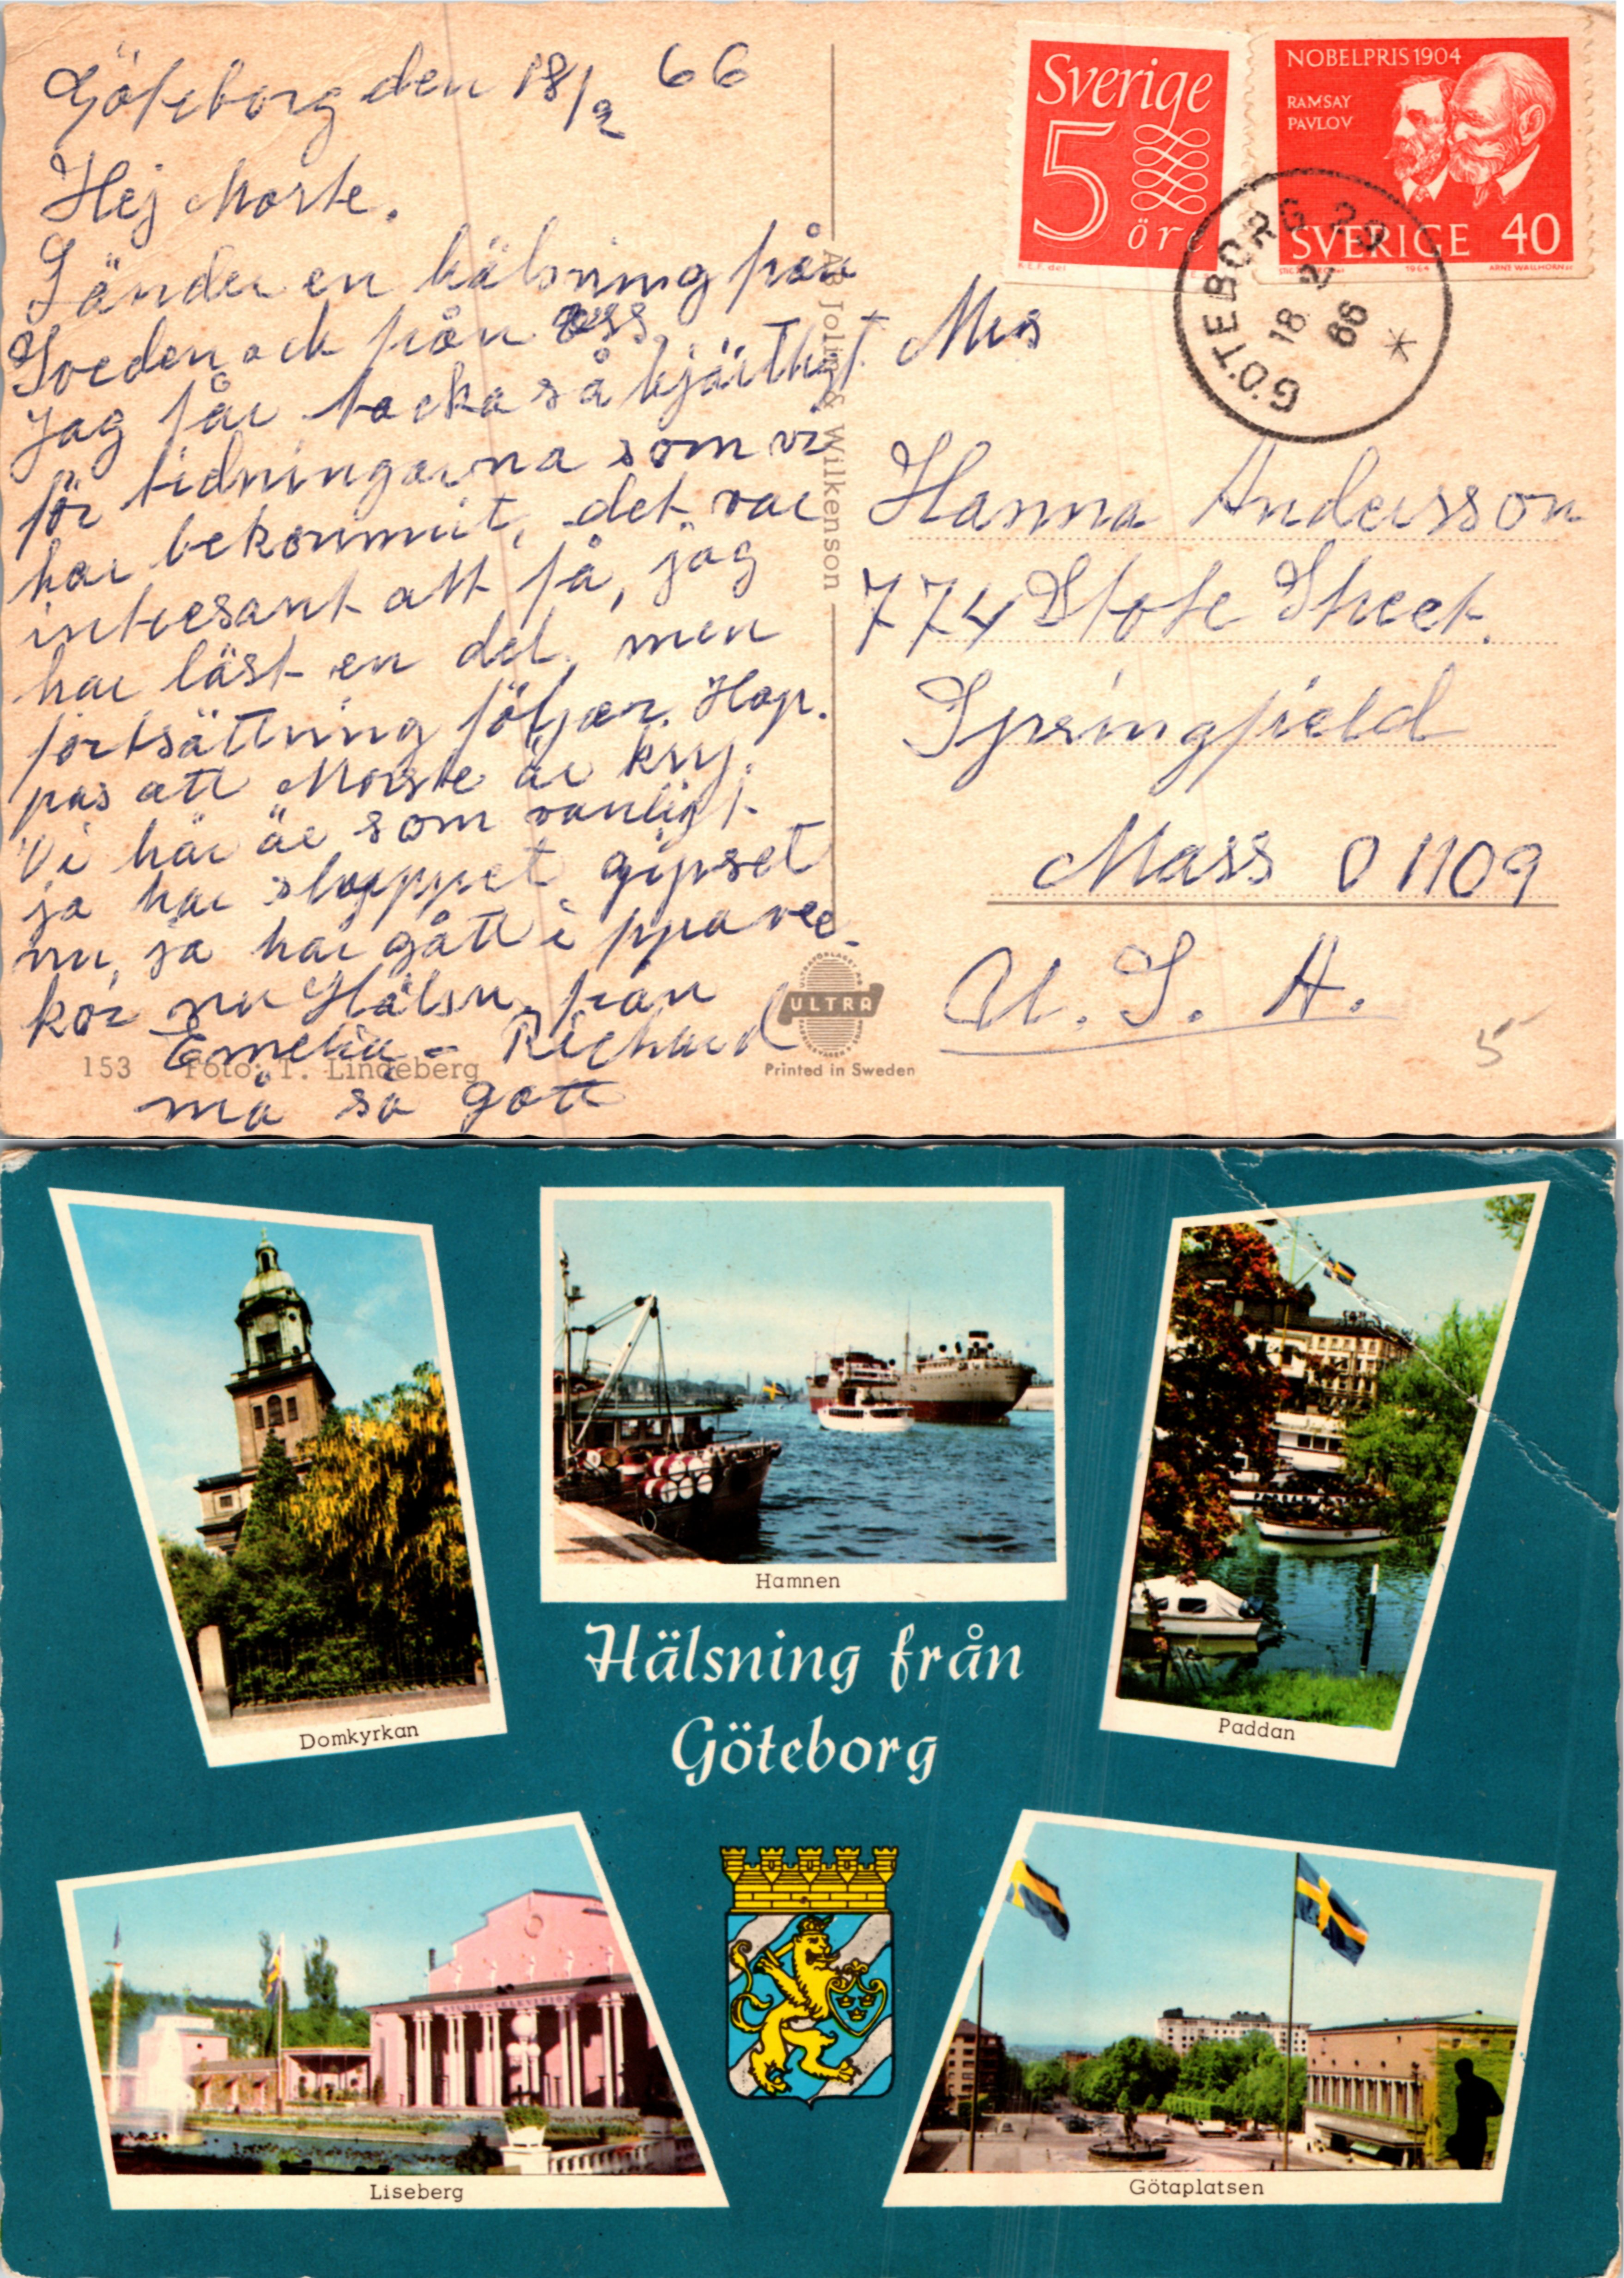 Göteborg den 18/2 66
Hej Moster.
Sänder en hälsning från
Sveden och från oss
Jag får tacka så hjärtligt
för tidningarna som vi
har bekommit, det var
intresant att få, jag
har läst en del, men
fortsättning följer. Hop.
pas att Moster är kry.
Vi här är som vanligt
ja har sluppet gipset
nu, ja har gått i ppa vec-
kor nu Hälsn, från
Emelia - Richard
må så gott
Mrs
Hanna Andersson
774 State Street.
Springfield
Mass 01109
U. S. A.
5
Sverige
5
ör
NOBELPRIS 1904
RAMSAY
PAVLOV
SVERIGE 40
1964
GÖTEBORG 20
18 2
66
AB Jolin & Wilkenson
ULTRA
Printed in Sweden
153 Foto: T. Lindeberg
Domkyrkan
Hamnen
Paddan
Hälsning från
Göteborg
Liseberg
Götaplatsen